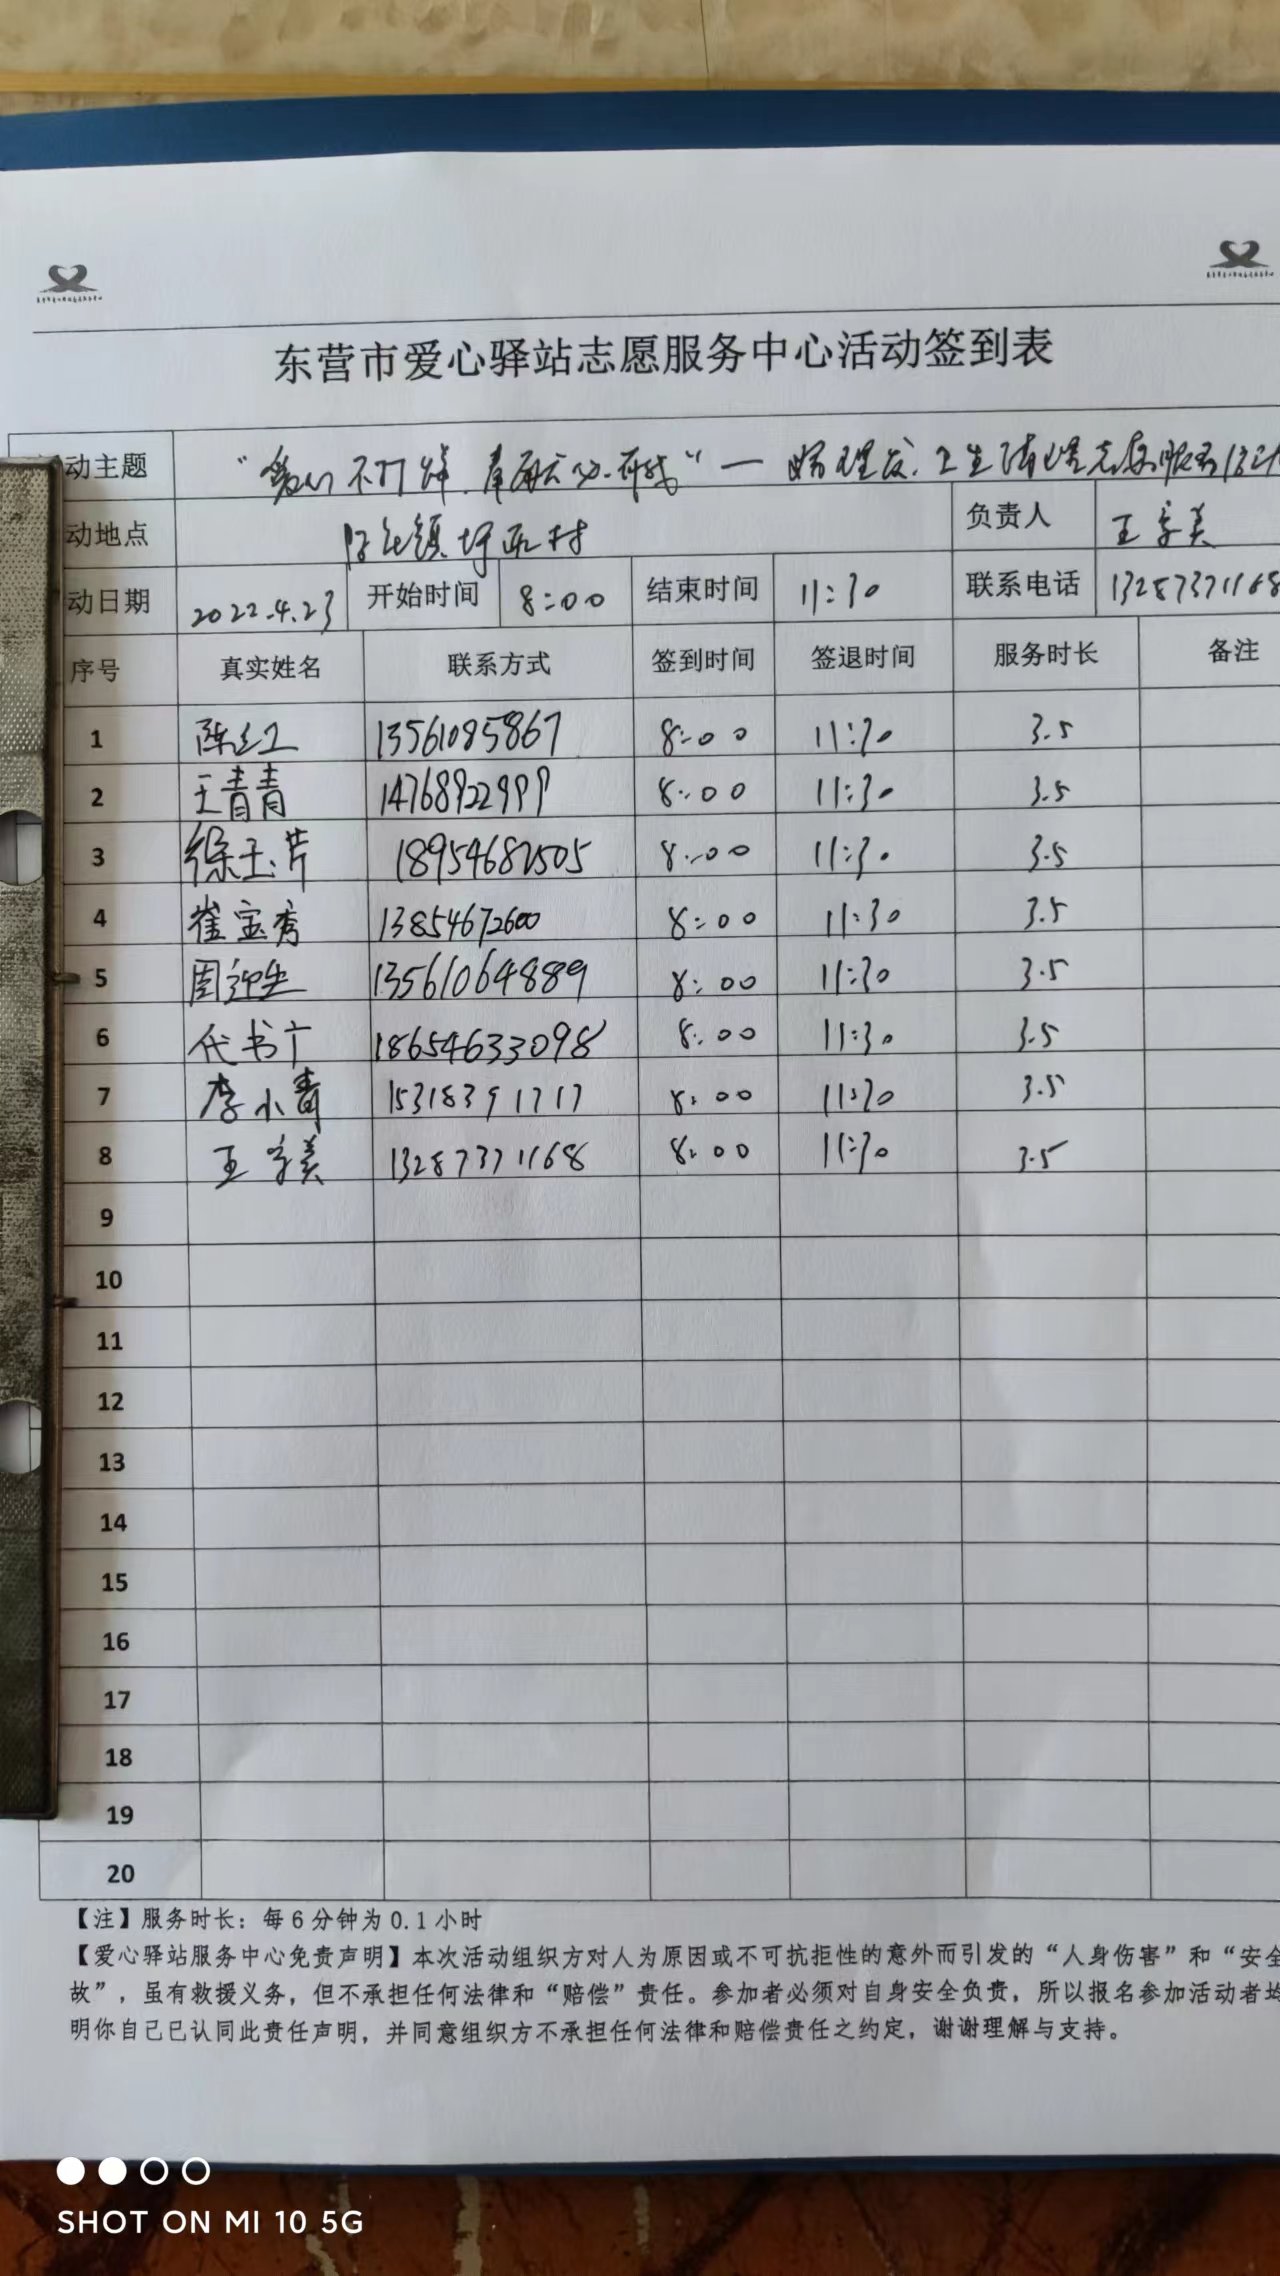 东营市爱心驿站志愿服务中心活动签到表
动主题 "爱心不打烊, — 理发、卫生清理志愿服务活动
动地点 村 负责人 王 美
动日期 2022.4.23 开始时间 8:00 结束时间 11:30 联系电话 13287371168
序号 真实姓名 联系方式 签到时间 签退时间 服务时长 备注
1 陈红 13561085867 8:00 11:30 3.5
2 王青青 14768922999 8:00 11:30 3.5
3 徐玉芹 18954682505 8:00 11:30 3.5
4 崔宝秀 13854672600 8:00 11:30 3.5
5 周迎生 13561064889 8:00 11:30 3.5
6 代书广 18654633098 8:00 11:30 3.5
7 李小青 15318391717 8:00 11:30 3.5
8 王 美 13287371168 8:00 11:30 3.5
9
10
11
12
13
14
15
16
17
18
19
20
【注】服务时长:每6分钟为0.1小时
【爱心驿站服务中心免责声明】本次活动组织方对人为原因或不可抗拒性的意外而引发的“人身伤害”和“安全
故”,虽有救援义务,但不承担任何法律和“赔偿”责任。参加者必须对自身安全负责,所以报名参加活动者均
明你自己已认同此责任声明,并同意组织方不承担任何法律和赔偿责任之约定,谢谢理解与支持。
SHOT ON MI 10 5G